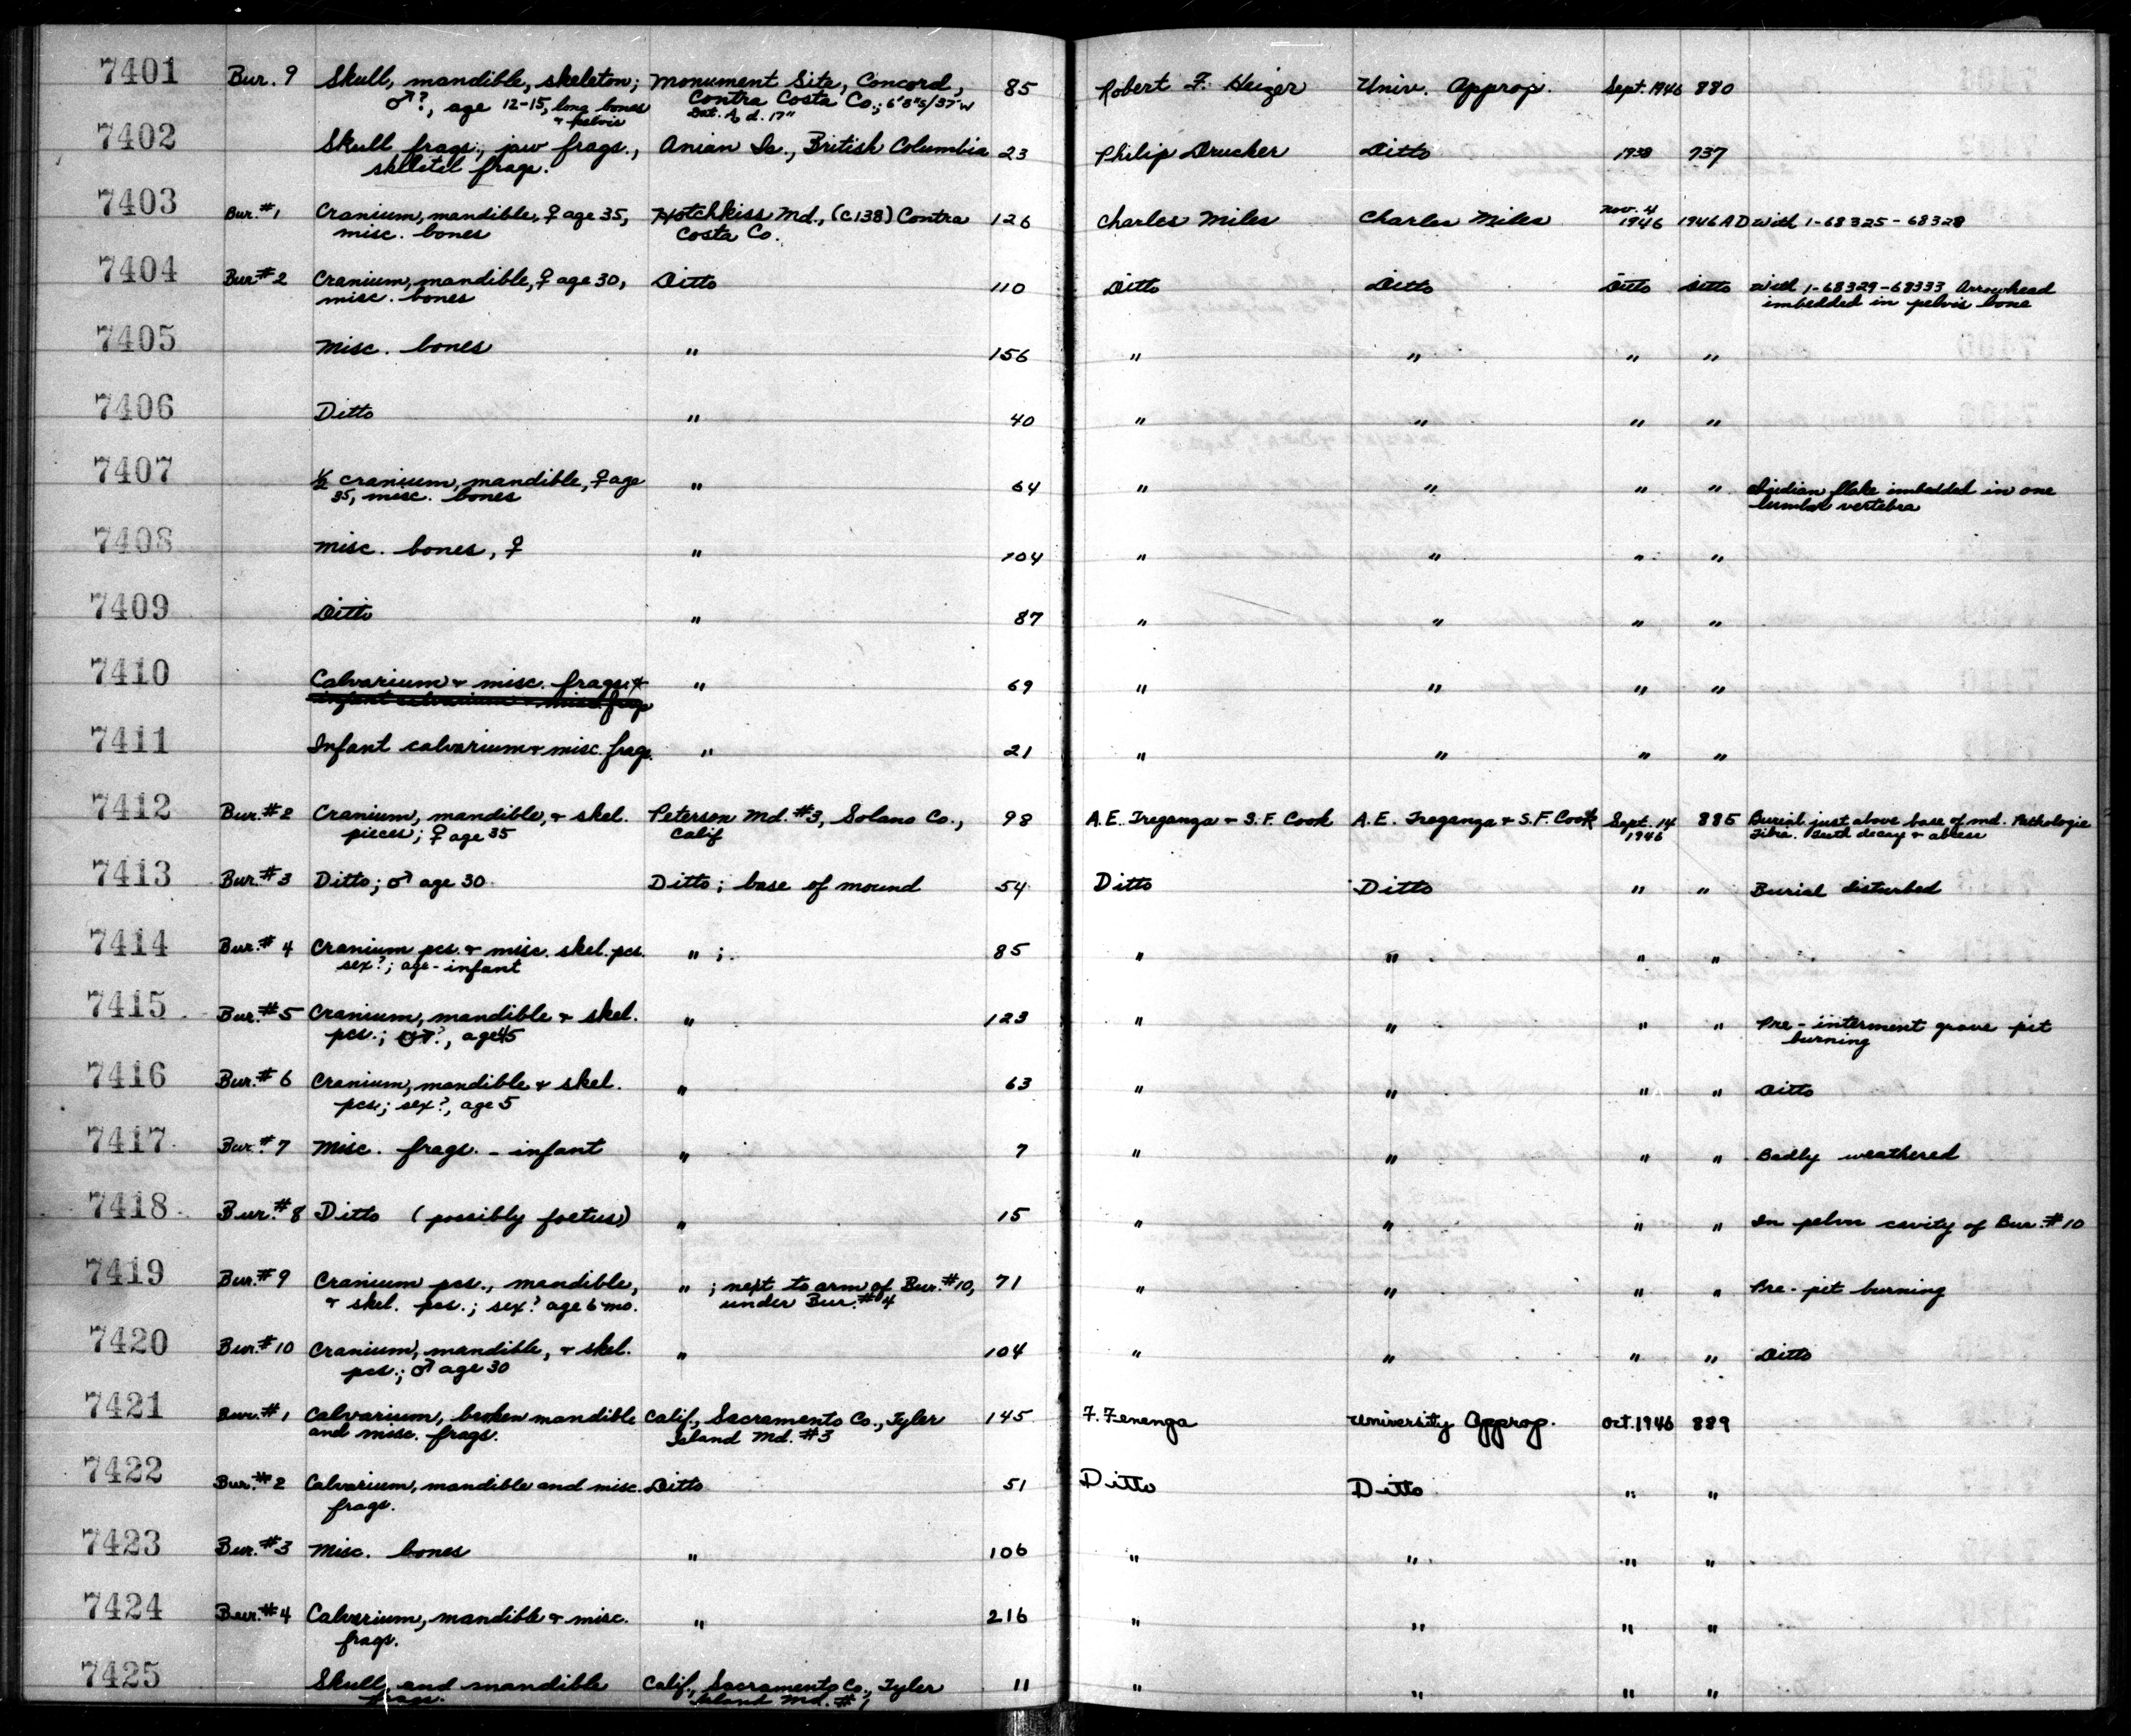 7401 Bur. 9 Skull, mandible, skeleton; Monument Site, Concord, 85 Robert F. Heizer Univ. Approp. Sept. 1946 880
♂?, age 12-15, long bones Contra Costa Co.; 6'8"S/37'W
& pelvis Dat. A, d. 17"
7402 Skull frags., jaw frags., Anian Is., British Columbia 23 Philip Drucker Ditto 1938 737
skeletal frags.
7403 Bur. #1 Cranium, mandible, ♀ age 35, Hotchkiss Md., (C138) Contra 126 Charles Miles Charles Miles Nov. 4 1946 1946AD With 1-68325-68328
misc. bones Costa Co.
7404 Bur #2 Cranium, mandible, ♀ age 30, Ditto 110 Ditto Ditto Ditto Ditto With 1-68329-68333 Arrowhead
misc. bones imbedded in pelvis bone
7405 Misc. bones " 156 " " " "
7406 Ditto " 40 " " " "
7407 ½ cranium, mandible, ♀ age " 64 " " " " Obsidian flake imbedded in one
35, misc. bones lumbar vertebra
7408 Misc. bones, ♀ " 104 " " " "
7409 Ditto " 87 " " " "
7410 Calvarium & misc. frags. " 69 " " " "
infant calvarium & misc. frags
7411 Infant calvarium & misc. frags. " 21 " " " "
7412 Bur. #2 Cranium, mandible, & skel. Peterson Md. #3, Solano Co., 98 A.E. Treganza & S.F. Cook A.E. Treganza & S.F. Cook Sept. 14 885 Burial just above base of md. Pathologic
pieces; ♀ age 35 Calif 1946 Tibia. Teeth decay & abcess
7413 Bur. #3 Ditto; ♂ age 30 Ditto; base of mound 54 Ditto Ditto " " Burial disturbed
7414 Bur. #4 Cranium pcs. & misc. skel. pcs. " ; 85 " " " "
sex?; age - infant
7415 Bur. #5 Cranium, mandible & skel. " 123 " " " " Pre-interment grave pit
pcs.; ♂?, age 45 burning
7416 Bur. #6 Cranium, mandible & skel. " 63 " " " " Ditto
pcs; sex?, age 5
7417 Bur. #7 Misc. frags. - infant " 7 " " " " Badly weathered
7418 Bur. #8 Ditto (possibly foetus) " 15 " " " " In pelvic cavity of Bur. #10
7419 Bur. #9 Cranium pcs., mandible, " ; next to arm of Bur. #10, 71 " " " " Pre-pit burning
& skel. pcs.; sex? age 6 mo. under Bur. #4
7420 Bur. #10 Cranium, mandible, & skel. " 104 " " " " Ditto
pcs.; ♂ age 30
7421 Bur. #1 Calvarium, broken mandible Calif., Sacramento Co., Tyler 145 F. Fenenga University Approp. Oct. 1946 889
and misc. frags. Island Md. #3
7422 Bur. #2 Calvarium, mandible and misc. Ditto 51 Ditto Ditto " "
frags.
7423 Bur. #3 Misc. bones " 106 " " " "
7424 Bur. #4 Calvarium, mandible & misc. " 216 " " " "
frags.
7425 Skull and mandible Calif., Sacramento Co., Tyler 11 " " " "
frags. Island Md. #1